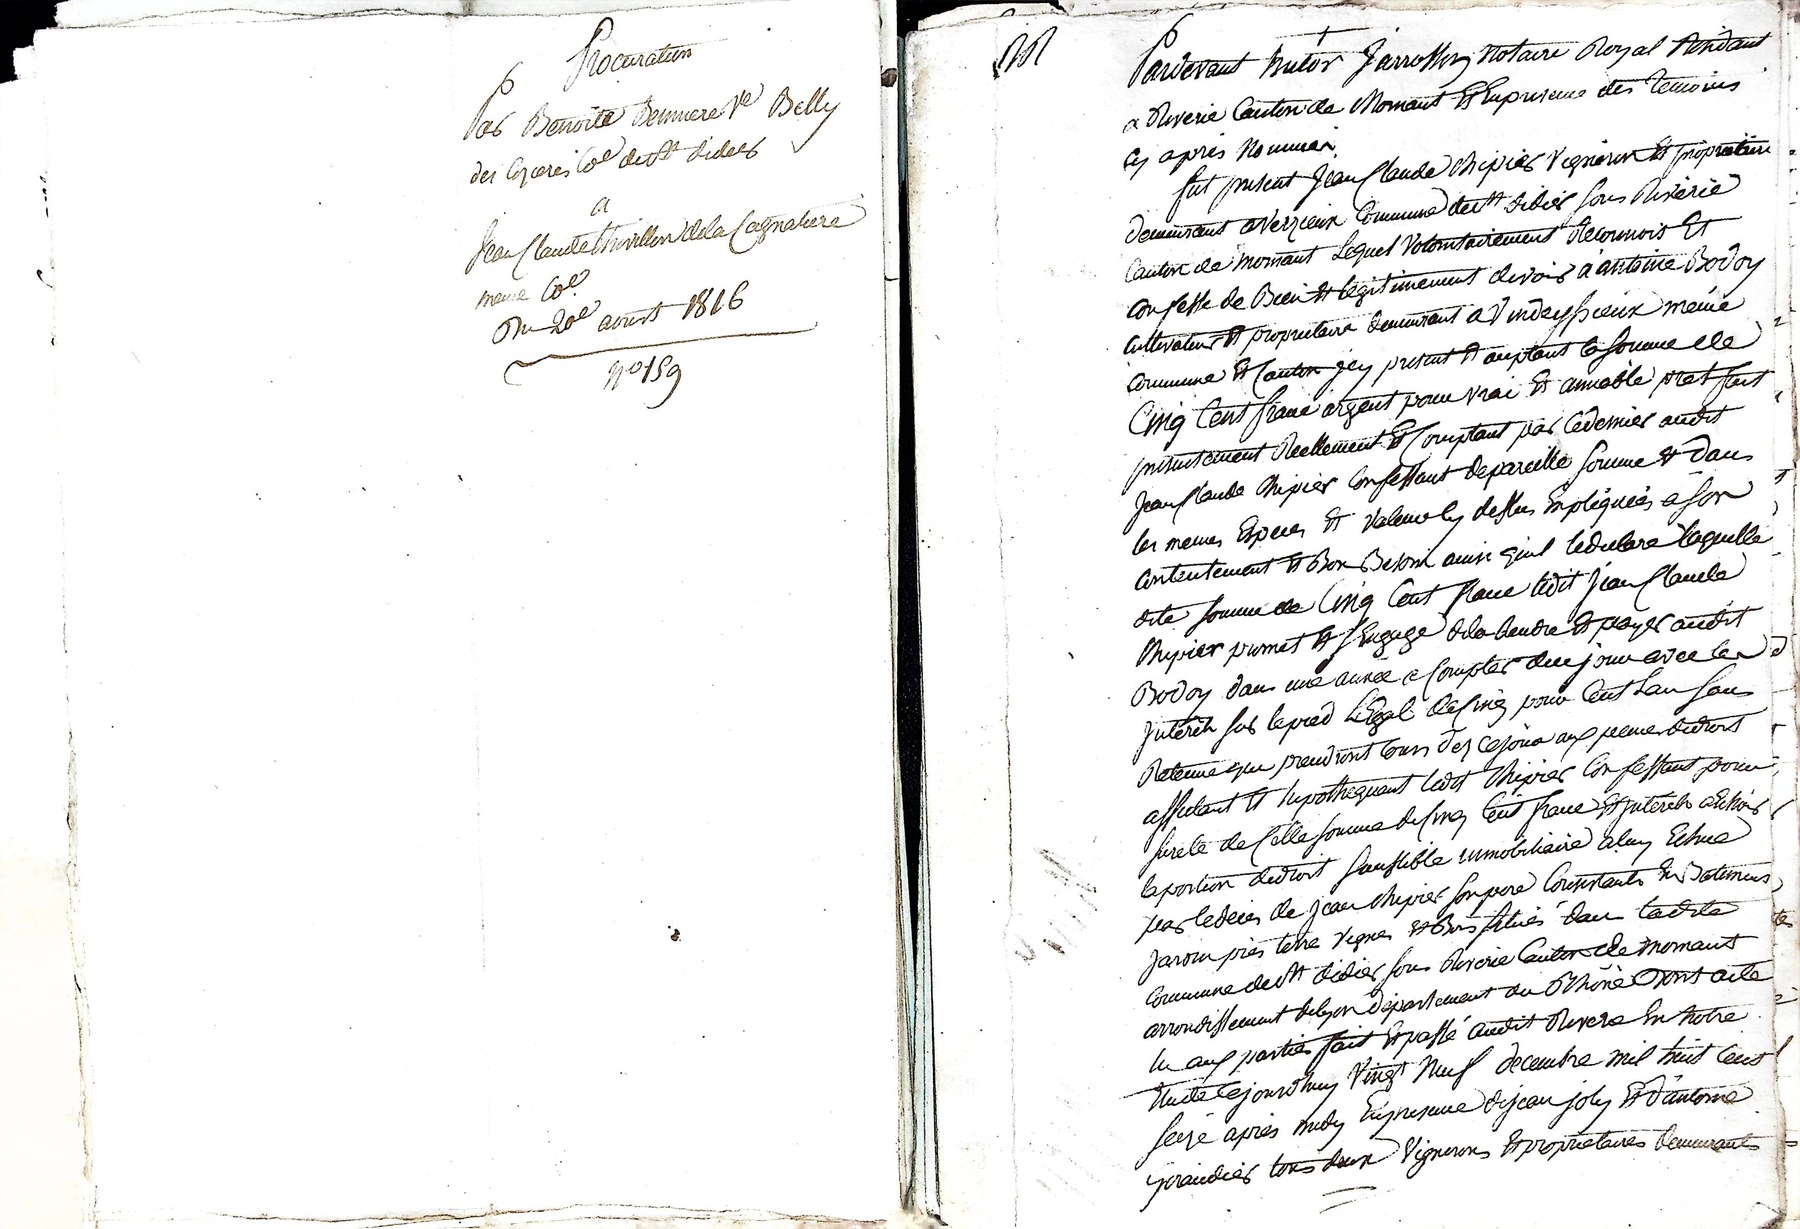 Procuration
Par Benoite Veuve Belly
des Cozeres Cne de St didier
a
Jean Claude Thivillon de la Cagnatiere
meme Cne
Du 20e aoust 1816
No 159
Pardevant Jarrosson Notaire Royal Résidant
a Riverie Canton de Mornant Et En presence des Temoins
Cy après Nommés
fut present Jean Claude Chipier Vigneron Et propriétaire
demeurant a Verzieux Commune de St didier Sous Riverie
Canton de mornant Lequel Volontairement Reconnois Et
Confesse de Bien Et legitimement devoir a antoine Bodoy
Cultivateur Et proprietaire demeurant a Vindeyssieux même
Commune Et Canton jcy present Et aceptant la Somme de
Cinq Cent franc argent pour vrai Et amiable pret fait
presentement Reellement Et Comptant par Cedernier audit
Jean Claude Chipier Confessant de pareille Somme Et dans
les memes Especes Et Valeur Cy dessus Expliquées a Son
Contentement Et Bon Besoin ainsi qu'il le declare laquelle
dite Somme de Cinq Cent franc ledit Jean Claude
Chipier promet Et S'Engage de la Rendre Et payer audit
Bodoy dans une année a Compter de ce jour avec les
Jnterêts Sur le pied Légal de Cinq pour Cent L'an Sans
Retenue qui prendront Cours dès ce jour aux peines de droit
affectant Et hypothequant ledit Chipier Confessant pour
Sureté de Celle Somme de Cinq Cent franc Et jnterêts
la portion de droit Immobiliaire a luy Echue
par le deces de Jean Chipier Son pere Consistants En Batimens
Jardin prés terre Vignes Et Bois Situés dans ladite
Commune de St didier Sous Riverie Canton de mornant
arrondissement de Lyon departement du Rhône Dont acte
lu aux parties fait Et passé audit Riverie En Notre
Etude Cejourdhuy Vingt Neuf decembre mil huit Cent
Seize après midy En presence de Jean joly Et d'antoine
grandier tous deux Vignerons Et proprietaires demeurants